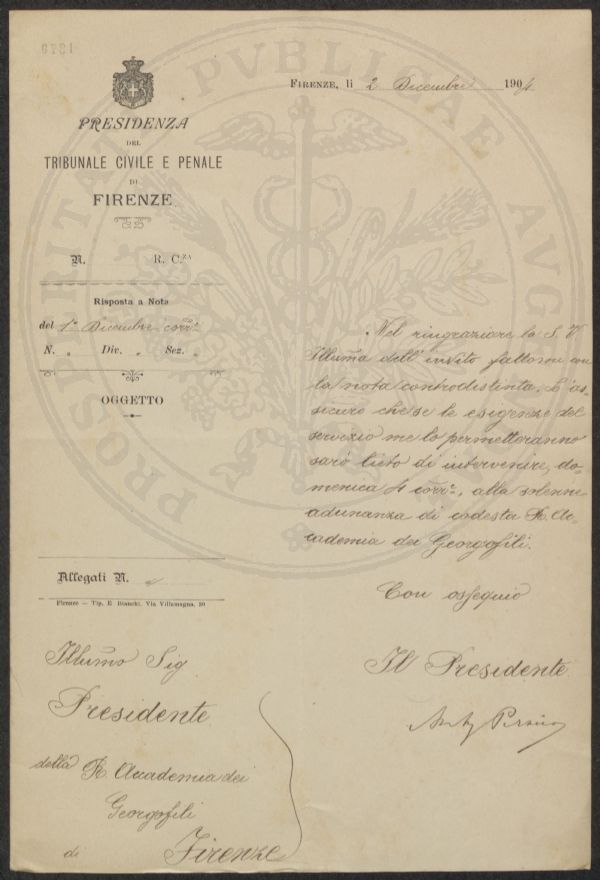 FIRENZE, li 2 Dicembre 1904
PRESIDENZA
DEL
TRIBUNALE CIVILE E PENALE
DI
FIRENZE
N. R. C.ZA
Risposta a Nota
del 1° Dicembre corre
N. „ Div. „ Sez. „
OGGETTO
Nel ringraziare la S. V.
Illuma dell'invito fattomi con
la nota controdistinta, L'as-
sicuro che se le esigenze del
servizio me lo permetteranno
sarò lieto di intervenire, do-
menica 4 corre, alla solenne
adunanza di codesta R. Ac-
cademia dei Georgofili.
Con ossequio
Il Presidente
Allegati N. „
Firenze — Tip. E. Bianchi, Via Villamagna, 20
Illumo Sig
Presidente
della R. Accademia dei
Georgofili
di Firenze
PROSPERITATI PVBLICAE AVG